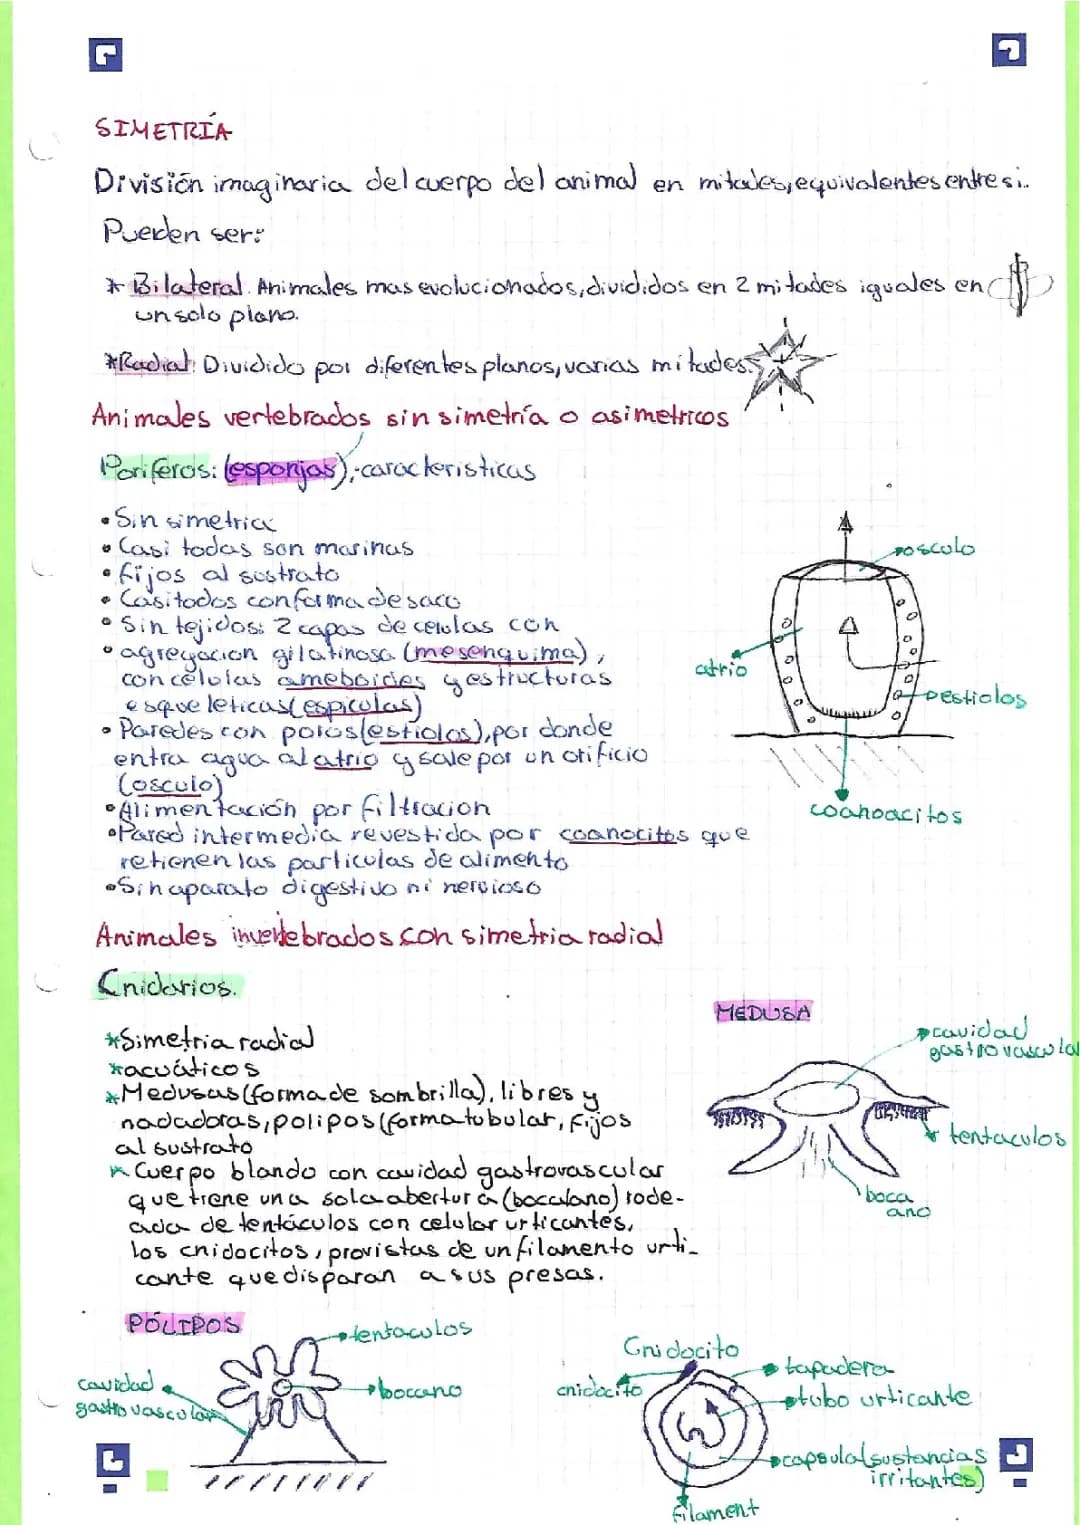 SIMETRÍA
División imaginaria del cuerpo del animal en mitades, equivalentes entre si.
Pueden ser:
* Bilateral. Animales mas evolucionados, divididos en 2 mitades iguales en
un solo plano.
*Radial: Dividido por diferentes planos, varias mitades.
Animales vertebrados sin simetría o asimetricos
Poriferos: (esponjas);-caracteristicas
• Sin simetria
• Casi todas son marinas
• fijos al sustrato
• Casi todos con forma de saco
• Sin tejidos: 2 capas de celulas con
• agregacion gilatinosa (mesenquima),
con células ameboides y estructuras
esqueleticas (espiculas)
• Paredes con poros (estiolos), por donde
entra agua al atrio y sale por un orificio
(osculo)
• Alimentación por filtracion
• Pared intermedia revestida por coanocitos que
retienen las particulas de alimento
• Sin aparato digestivo ni nervioso
osculo
atrio
pestiolos
coanoacitos
Animales invertebrados con simetria radial
Cnidarios.
*Simetria radial
*acuáticos
*Medusas (forma de sombrilla), libres y
nadadoras, polipos (forma tubular, fijos
al sustrato
* Cuerpo blando con cavidad gastrovascular
que tiene una sola abertura (boca/ano) rode-
ada de tentáculos con celular urticantes,
los cnidocitos, provistas de un filamento urti-
cante que disparan a sus presas.
MEDUSA
cavidad
gastrovascular
tentaculos
boca
ano
PÓLIPOS
tentaculos
bocano
cavidad
gastrovascular
Cnidocito
cnidocito
tapadera
tubo urticante
capsula (sustancias
irritantes)
filament